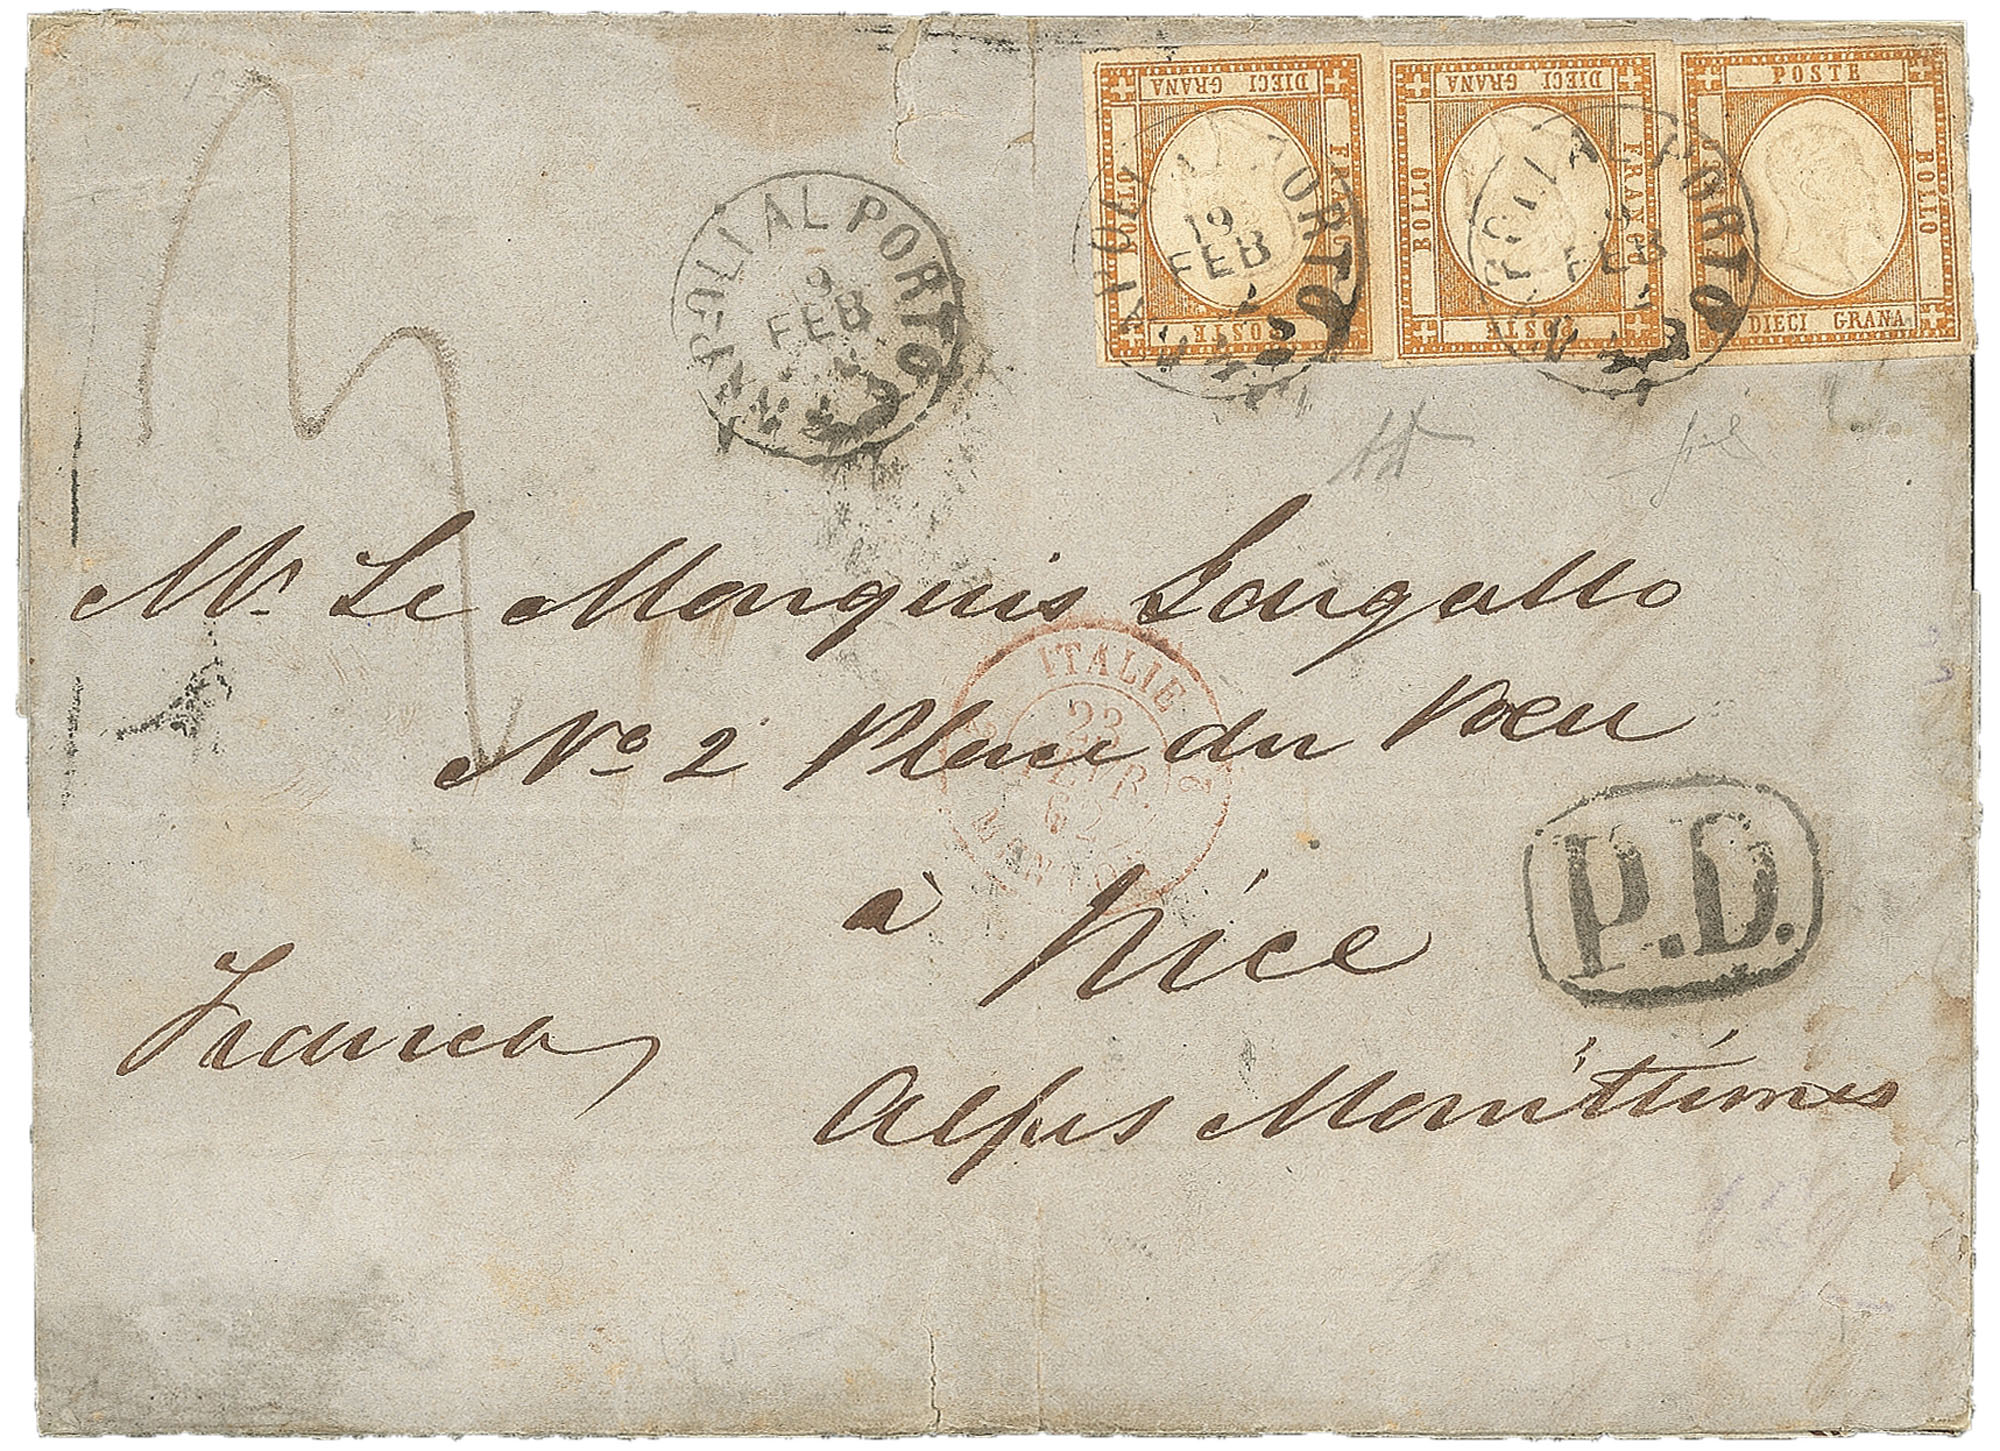 DIECI GRANA
BOLLO
FRANCO
POSTE
DIECI GRANA
BOLLO
FRANCO
POSTE
POSTE
BOLLO
DIECI GRANA
NAPOLI AL PORTO
19
FEB
NAPOLI AL PORTO
19
FEB
NAPOLI AL PORTO
FEB
Mr. Le Marquis Gargallo
No 2 Place du Voeu
à Nice
Alpes Marittimes
Franca
ITALIE
23
FEVR.
62
MENTON
P.D.